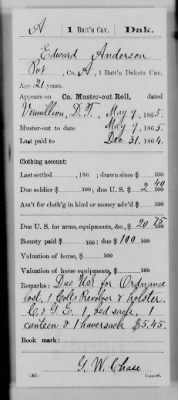 A | 1 Batt'n Cav. | Dak.
Edward Anderson
Pvt, Co. A, 1 Batt'n Dakota Cav.
Age 21 years.
Appears on Co. Muster-out Roll, dated
Vermillion, D. T., May 9, 1865.
Muster-out to date May 9, 1865.
Last paid to Dec 31, 1864.
Clothing account:
Last settled , 186 ; drawn since $ 100
Due soldier $ 100; due U. S. $ 2 40/100
Am't for cloth'g in kind or money adv'd $ 100
Due U. S. for arms, equipments, &c., $ 20 75/100
Bounty paid $ 100; due $ 100 100
Valuation of horse, $ 100
Valuation of horse equipments, $ 100
Remarks: Due U.S. for Ordnance
lost, 1 Colts Revolver & holster
C. & G. E. 1 bed sack. 1
canteen & 1 haversack $5.45.
Book mark:
G. W. Chase
Copyist.